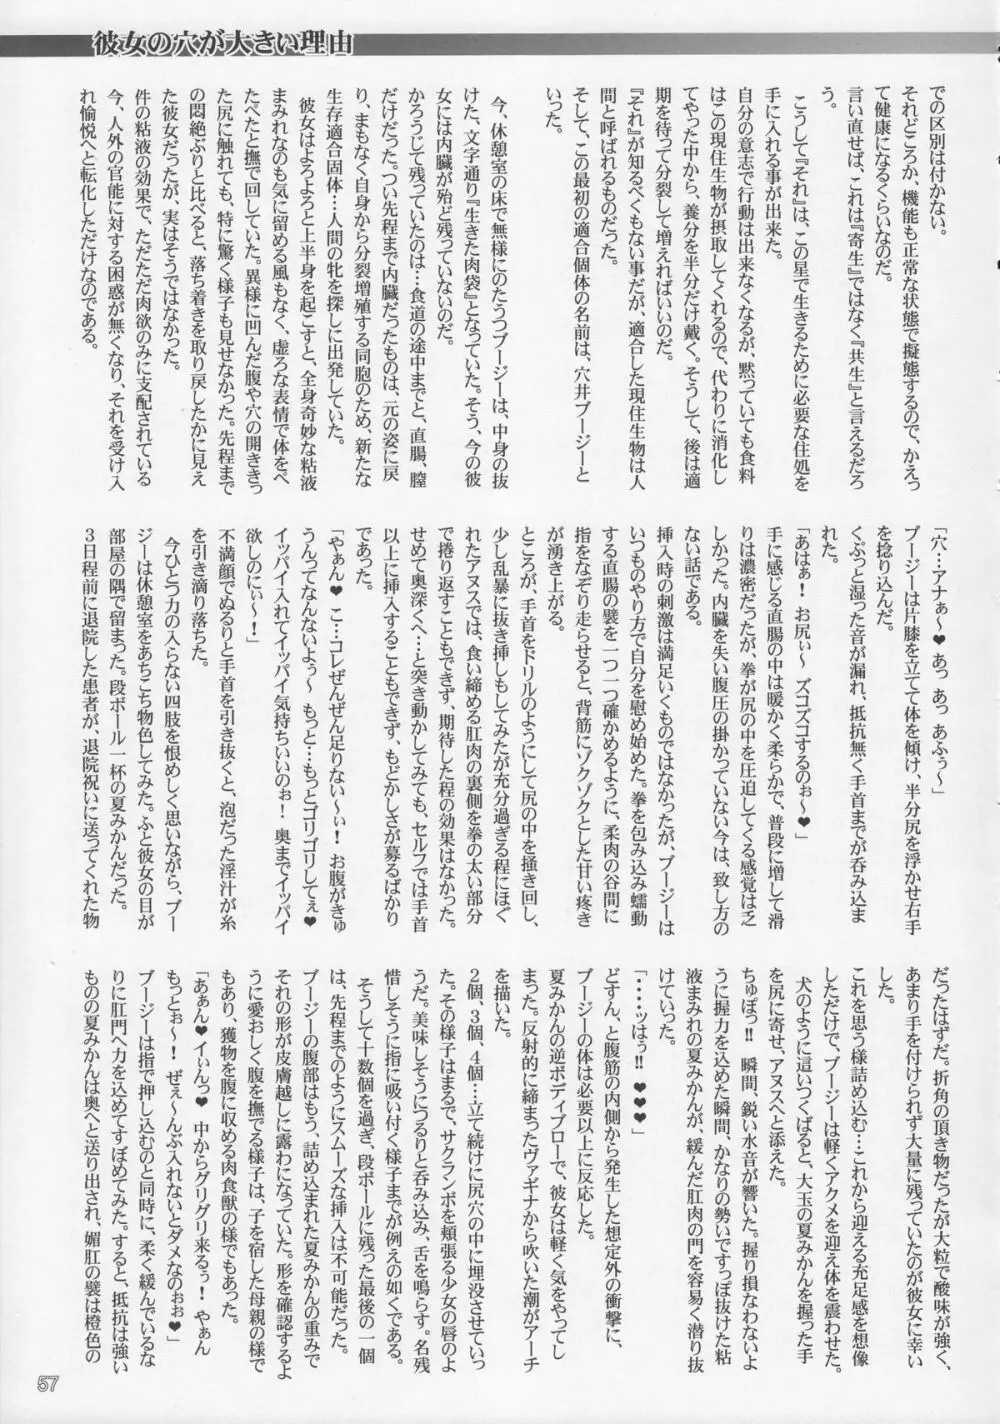 彼女の穴が大きい理由
での区別は付かない。
それどころか、機能も正常な状態で擬態するので、かえっ
て健康になるくらいなのだ。
言い直せば、これは『寄生』ではなく『共生』と言えるだろ
う。
こうして『それ』は、この星で生きるために必要な住処を
手に入れる事が出来た。
自分の意志で行動は出来なくなるが、黙っていても食料
はこの現住生物が摂取してくれるので、代わりに消化し
てやった中から、養分を半分だけ戴く。そうして、後は適
期を待って分裂して増えればいいのだ。
『それ』が知るべくもない事だが、適合した現住生物は人
間と呼ばれるものだった。
そして、この最初の適合個体の名前は、穴井ブージーと
いった。
今、休憩室の床で無様にのたうつブージーは、中身の抜
けた、文字通り『生きた肉袋』となっていた。そう、今の彼
女には内臓が殆ど残っていないのだ。
かろうじて残っていたのは…食道の途中までと、直腸、膣
だけだった。つい先程まで内臓だったものは、元の姿に戻
り、まもなく自身から分裂増殖する同胞のため、新たな
生存適合固体…人間の牝を探しに出発していた。
彼女はよろよろと上半身を起こすと、全身奇妙な粘液
まみれなのも気に留める風もなく、虚ろな表情で体をぺ
たぺたと撫で回していた。異様に凹んだ腹や穴の開ききっ
た尻に触れても、特に驚く様子も見せなかった。先程まで
の悶絶ぶりと比べると、落ち着きを取り戻したかに見え
た彼女だったが、実はそうではなかった。
件の粘液の効果で、ただただ肉欲のみに支配されている
今、人外の官能に対する困惑が無くなり、それを受け入
れ愉悦へと転化しただけなのである。
「穴…アナぁ～♥ あっ あっ あふぅ～」
ブージーは片膝を立てて体を傾け、半分尻を浮かせ右手
を捻り込んだ。
くぷっと湿った音が漏れ、抵抗無く手首までが呑み込ま
れた。
「あはぁ！ お尻ぃ～ ズコズコするのぉ～♥」
手に感じる直腸の中は暖かく柔らかで、普段に増して滑
りは濃密だったが、拳が尻の中を圧迫してくる感覚は乏
しかった。内臓を失い腹圧の掛かっていない今は、致し方の
ない話である。
挿入時の刺激は満足いくものではなかったが、ブージーは
いつものやり方で自分を慰め始めた。拳を包み込み蠕動
する直腸の襞を一つ一つ確かめるように、柔肉の谷間に
指をなぞり走らせると、背筋にゾクゾクとした甘い疼き
が湧き上がる。
ところが、手首をドリルのようにして尻の中を掻き回し、
少し乱暴に抜き挿しもしてみたが充分過ぎる程にほぐ
れたアヌスでは、食い締める肛肉の裏側を拳の太い部分
で捲り返すこともできず、期待した程の効果はなかった。
せめて奥深くへ…と突き動かしてみても、セルフでは手首
以上に挿入することもできず、もどかしさが募るばかり
であった。
「やぁん♥ こ…コレぜんぜん足りない～ぃ！ お腹がきゅ
うんってなんないよぅ～ もっと…もっとゴリゴリしてぇ♥
イッパイ入れてイッパイ気持ちいいのぉ！ 奥までイッパイ
欲しのにぃ～！」
不満顔でぬるりと手首を引き抜くと、泡だった淫汁が糸
を引き滴り落ちた。
今ひとつ力の入らない四肢を恨めしく思いながら、ブー
ジーは休憩室をあちこち物色してみた。ふと彼女の目が
部屋の隅で留まった。段ボール一杯の夏みかんだった。
3日程前に退院した患者が、退院祝いに送ってくれた物
だったはずだ。折角の頂き物だったが大粒で酸味が強く、
あまり手を付けられず大量に残っていたのが彼女に幸い
した。
これを思う様詰め込む…これから迎える充足感を想像
しただけで、ブージーは軽くアクメを迎え体を震わせた。
犬のように這いつくばると、大玉の夏みかんを握った手
を尻に寄せ、アヌスへと添えた。
ちゅぽっ!! 瞬間、鋭い水音が響いた。握り損なわないよ
うに握力を込めた瞬間、かなりの勢いですっぽ抜けた粘
液まみれの夏みかんが、緩んだ肛肉の門を容易く潜り抜
けていった。
「……ッはぅ!! ♥♥♥」
どすん、と腹筋の内側から発生した想定外の衝撃に、
ブージーの体は必要以上に反応した。
夏みかんの逆ボディブローで、彼女は軽く気をやってし
まった。反射的に締まったヴァギナから吹いた潮がアーチ
を描いた。
2個、3個、4個…立て続けに尻穴の中に埋没させていっ
た。その様子はまるで、サクランボを頬張る少女の唇のよ
うだ。美味しそうにつるりと呑み込み、舌を鳴らす。名残
惜しそうに指に吸い付く様子までが例えの如くである。
そうして十数個を過ぎ、段ボールに残った最後の一個
は、先程までのようにスムーズな挿入は不可能だった。
ブージーの腹部はもう、詰め込まれた夏みかんの重みで
それの形が皮膚越しに露わになっていた。形を確認するよ
うに愛おしく腹を撫でる様子は、子を宿した母親の様で
もあり、獲物を腹に収める肉食獣の様でもあった。
「あぁん♥ イぃんっ♥ 中からグリグリ来るぅ！ やぁん
もっとぉ～！ ぜぇ～んぶ入れないとダメなのぉぉ♥」
ブージーは指で押し込むのと同時に、柔く緩んでいるな
りに肛門へ力を込めてすぼめてみた。すると、抵抗は強い
ものの夏みかんは奥へと送り出され、媚肛の襞は橙色の
57